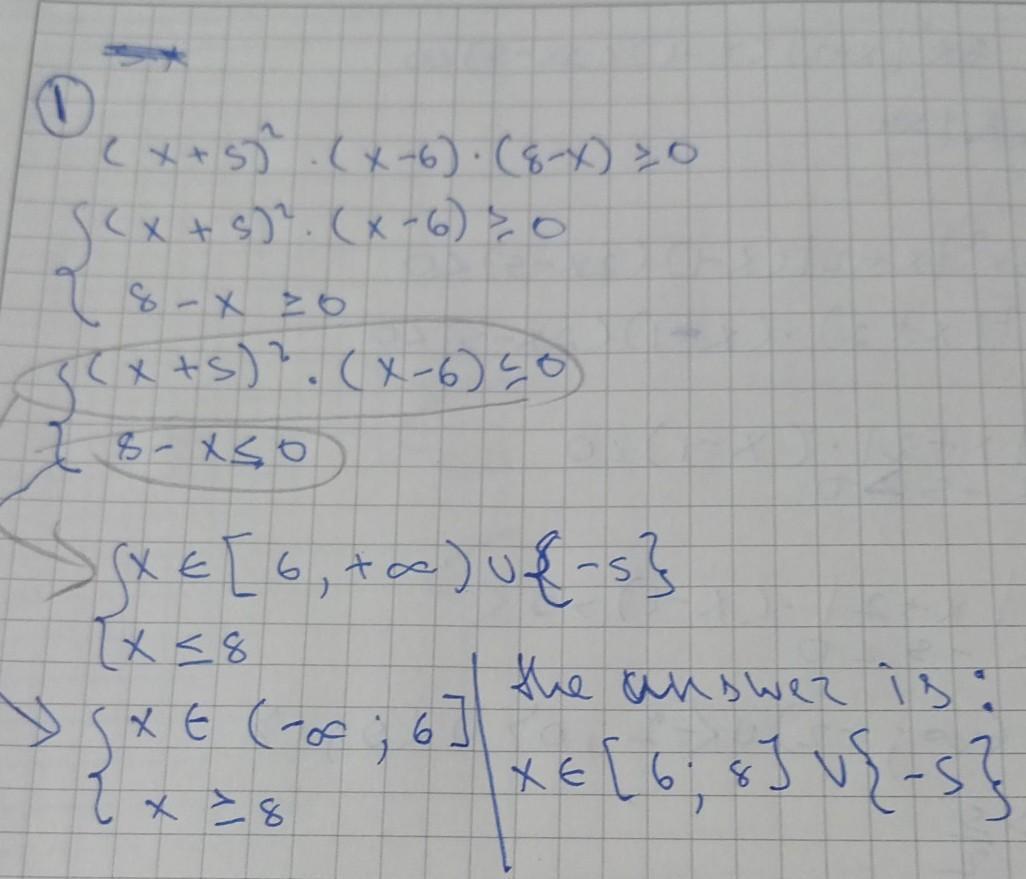 ①
(x+5)² · (x-6) · (8-x) ≥ 0
{ (x+5)² · (x-6) ≥ 0
8 - x ≥ 0
{ (x+5)² · (x-6) ≤ 0
8 - x ≤ 0
{ x ∈ [6, +∞) ∪ {-5}
x ≤ 8
{ x ∈ (-∞; 6]
x ≥ 8
the answer is:
x ∈ [6; 8] ∪ {-5}